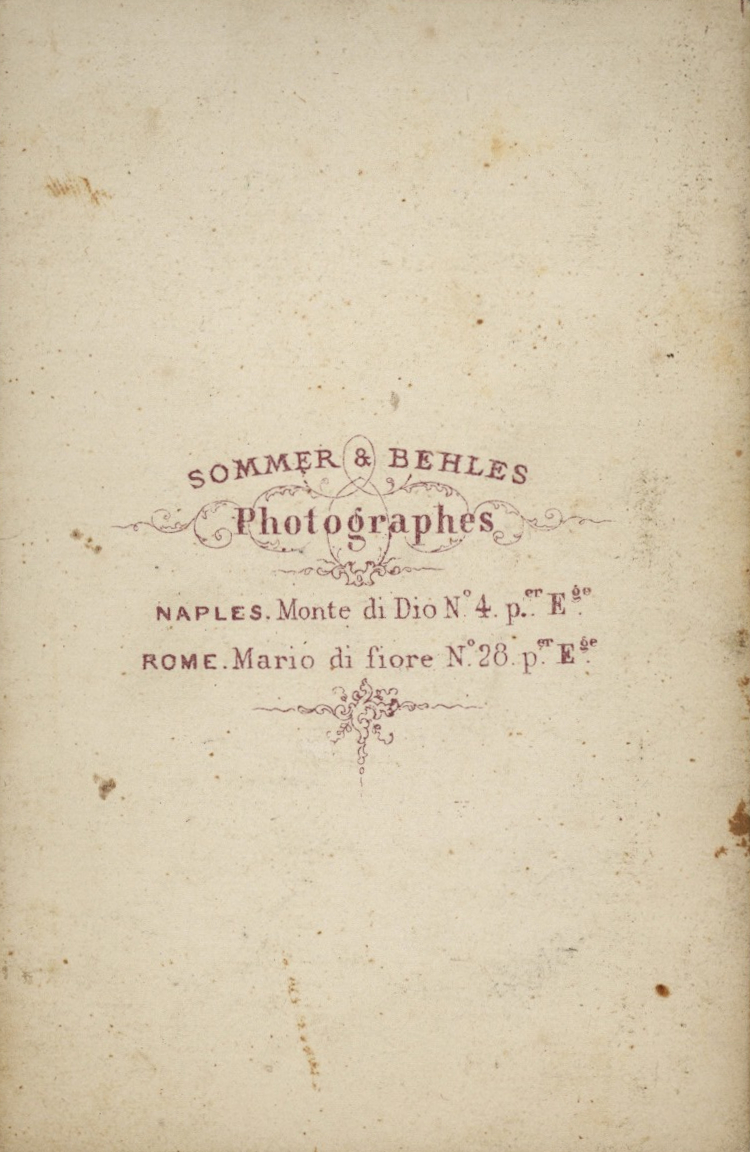 SOMMER & BEHLES
Photographes
NAPLES. Monte di Dio Nº 4. p.er Ege
ROME. Mario di fiore Nº 28. p.er Ege